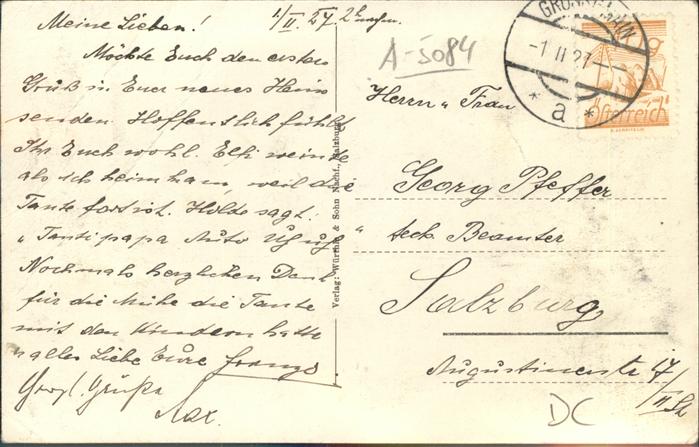 Meine Lieben! 1./II. 27. 2h nachm.
Möchte Euch den ersten
Gruß in Euer neues Heim
senden. Hoffentlich fühlt
Ihr Euch wohl. Elfi weinte
als ich heimkam, weil die
Tante fort ist. Holde sagt:
"Tanti papa Auto
Nochmals herzlichen Dank
für die Mühe die Tante
mit den Kindern hatte
alles Liebe Eure
Grüße
A-5084
GRÖDIG
-1 II 27
* a *
Österreich
Herrn u Frau
Georg Pfeffer
tech. Beamter
Salzburg
Augustinerstr 17
II St
DC
Verlag: Würthle & Sohn Nachf., Salzburg